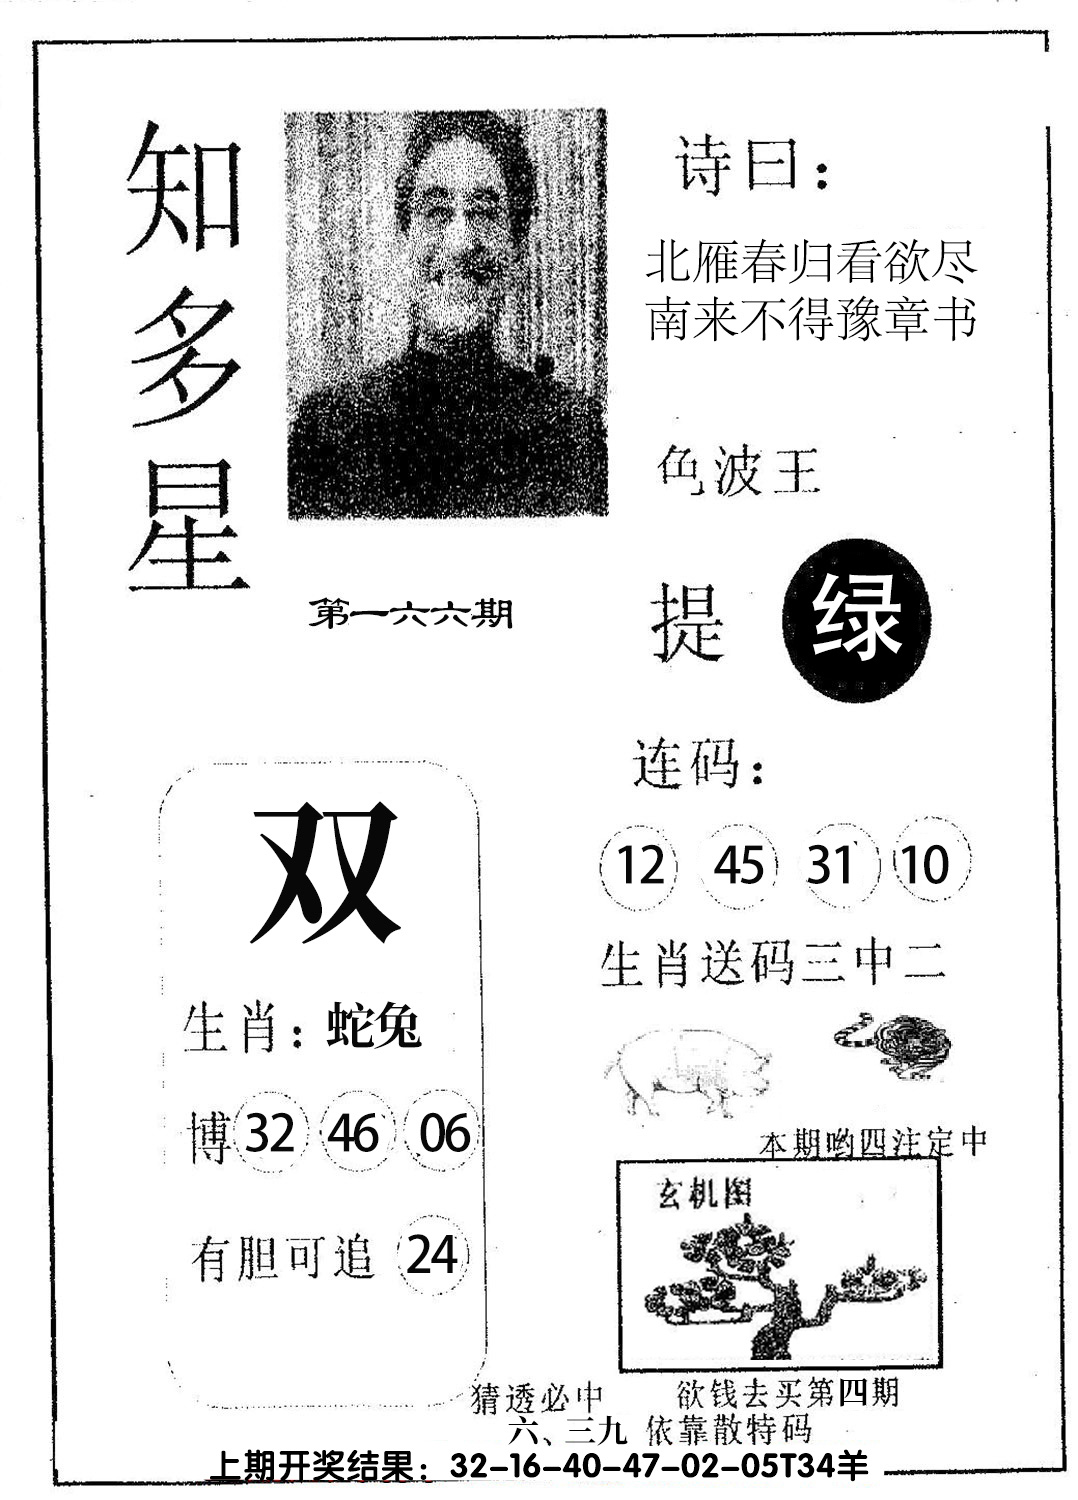 知多星
诗曰：
北雁春归看欲尽
南来不得豫章书
色波王
提 绿
第一六六期
连码：
12 45 31 10
生肖送码三中二
双
生肖：蛇兔
博 32 46 06
有胆可追 24
本期哟四注定中
玄机图
猜透必中 欲钱去买第四期
六、三九 依靠散特码
上期开奖结果：32-16-40-47-02-05T34羊